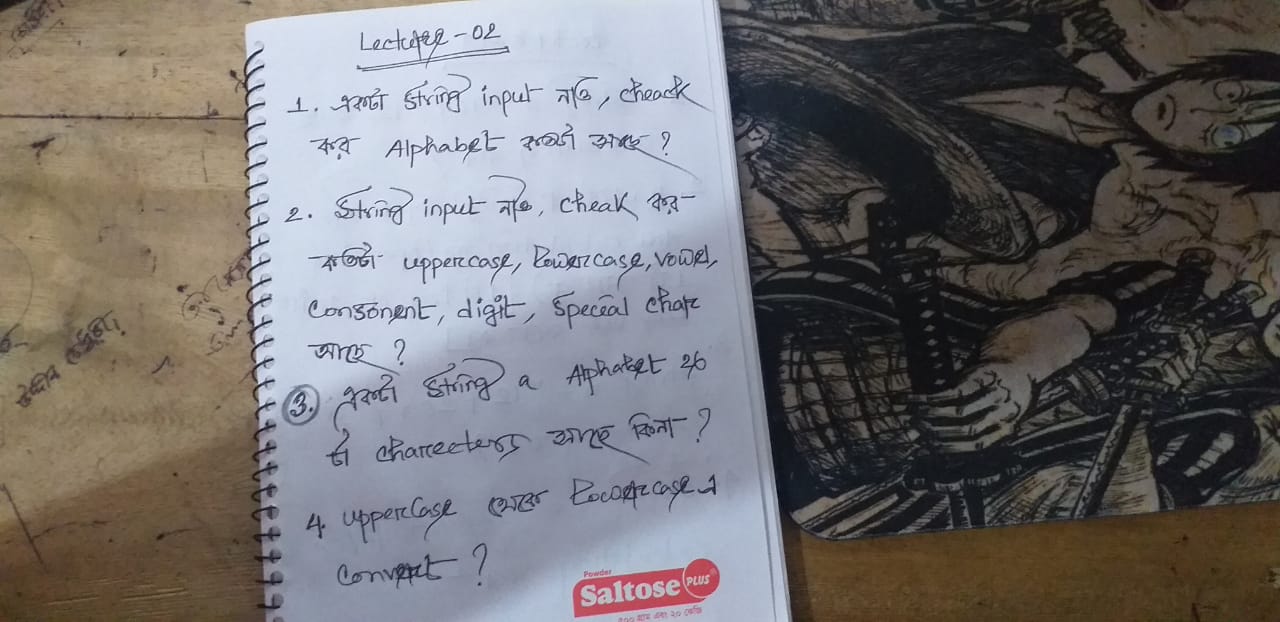 Lecture - 02
1. একটা string input নাও, cheack
কর Alphabet কতটা আছে ?
2. String input নাও, cheak কর
কতটা uppercase, Lowercase, vowel,
Consonent, digit, special char
আছে ?
3. একটা string a Alphabet 26
টা charecters আছে কিনা ?
4. uppercase থেকে Lowercase এ
Convert ?
Powder
Saltose PLUS
৫০০ গ্রাম এবং ২০ কেজি